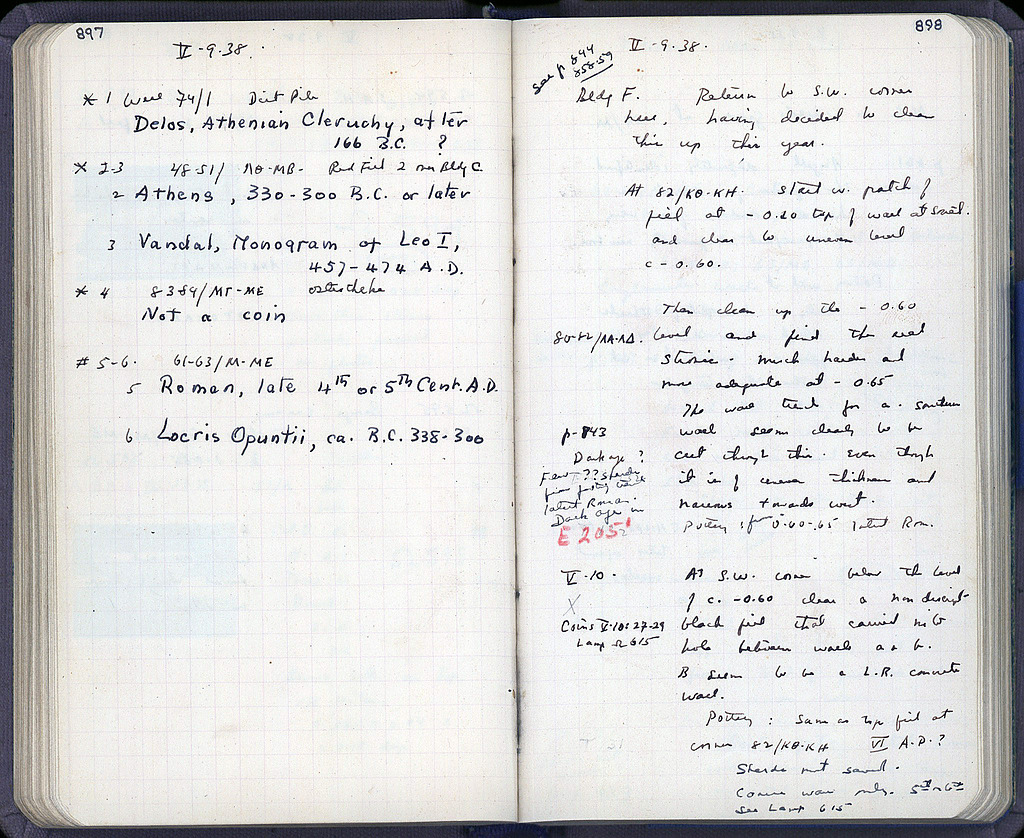 897
V-9-38.
* 1 West 74/1 Dirt Pile
Delos, Athenian Cleruchy, after
166 B.C. ?
* 2-3 48-51/ Red Fill 2 Bldg C.
2 Athens, 330-300 B.C. or later
3 Vandal, Monogram of Leo I,
457-474 A.D.
* 4 83-84/ΜΓ-ΜΕ ostotheke
Not a coin
# 5-6. 61-63/Μ-ΜΕ
5 Roman, late 4th or 5th Cent. A.D.
6 Locris Opuntii, ca. B.C. 338-300
898
V-9-38.
see p 844
858-59
Bldg F. Return to S.W. corner
here, having decided to clean
this up this year.
At 82/ΚΘ-ΚΗ. start w. patch of
fill at -0.20 top of wall at
and clear to uneven level
c -0.60.
Then clean up the -0.60
80-82/ΛΑ-ΛΔ. level and find the real
. Much harder and
more adequate at -0.65
The wall trench for a southern
p-843 wall seems clearly to be
Dark age? cut through this. Even though
Few ?? sherds
from
latest Roman.
Dark age in
E 205
it is of uneven thickness and
narrows towards west.
Pottery: from 0.60-.65 latest Rom.
V-10. At S.W. corner below the level
X
of c. -0.60 clear a non descript
Coins V-10: 27-29 black fill that carried into
Lamp 615
hole between walls a + b.
B seems to be a L.R. concrete
wall.
Pottery: Same as top fill at
corner 82/ΚΘ-ΚΗ VI A.D.?
Sherds not saved.
Coarse ware only. 5th-6th
see Lamp 615